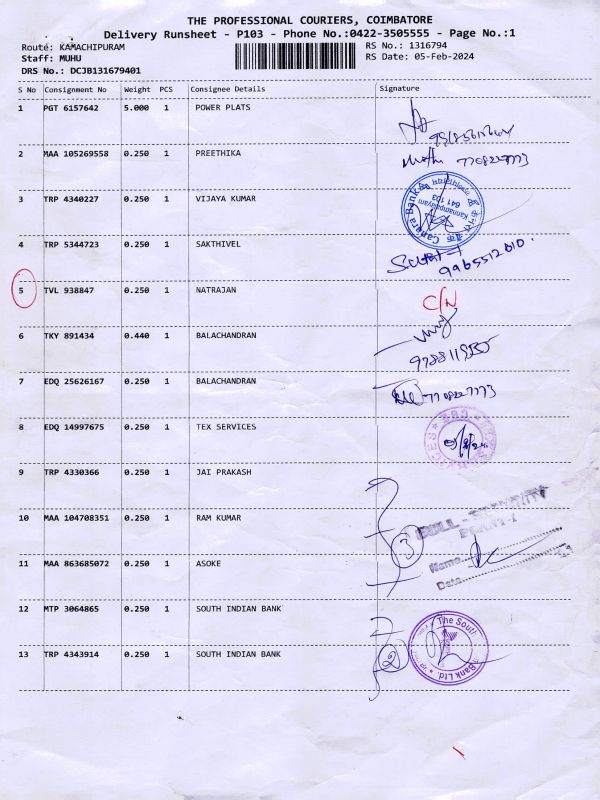 THE PROFESSIONAL COURIERS, COIMBATORE
Delivery Runsheet - P103 - Phone No.:0422-3505555 - Page No.:1
Route: KAMACHIPURAM
RS No.: 1316794
Staff: MUHU
RS Date: 05-Feb-2024
DRS No.: DCJB131679401
S No Consignment No Weight PCS Consignee Details Signature
1 PGT 6157642 5.000 1 POWER PLATS
2 MAA 105269558 0.250 1 PREETHIKA
7708227773
3 TRP 4340227 0.250 1 VIJAYA KUMAR
Canara Bank
641 103
4 TRP 5344723 0.250 1 SAKTHIVEL
9965512010.
5 TVL 938847 0.250 1 NATRAJAN C/N
6 TKY 891434 0.440 1 BALACHANDRAN
7 EDQ 25626167 0.250 1 BALACHANDRAN
7708227773
8 EDQ 14997675 0.250 1 TEX SERVICES
9 TRP 4330366 0.250 1 JAI PRAKASH
10 MAA 104708351 0.250 1 RAM KUMAR
3
Name
11 MAA 863685072 0.250 1 ASOKE
Date
12 MTP 3064865 0.250 1 SOUTH INDIAN BANK
The South
13 TRP 4343914 0.250 1 SOUTH INDIAN BANK
2
Bank Ltd.